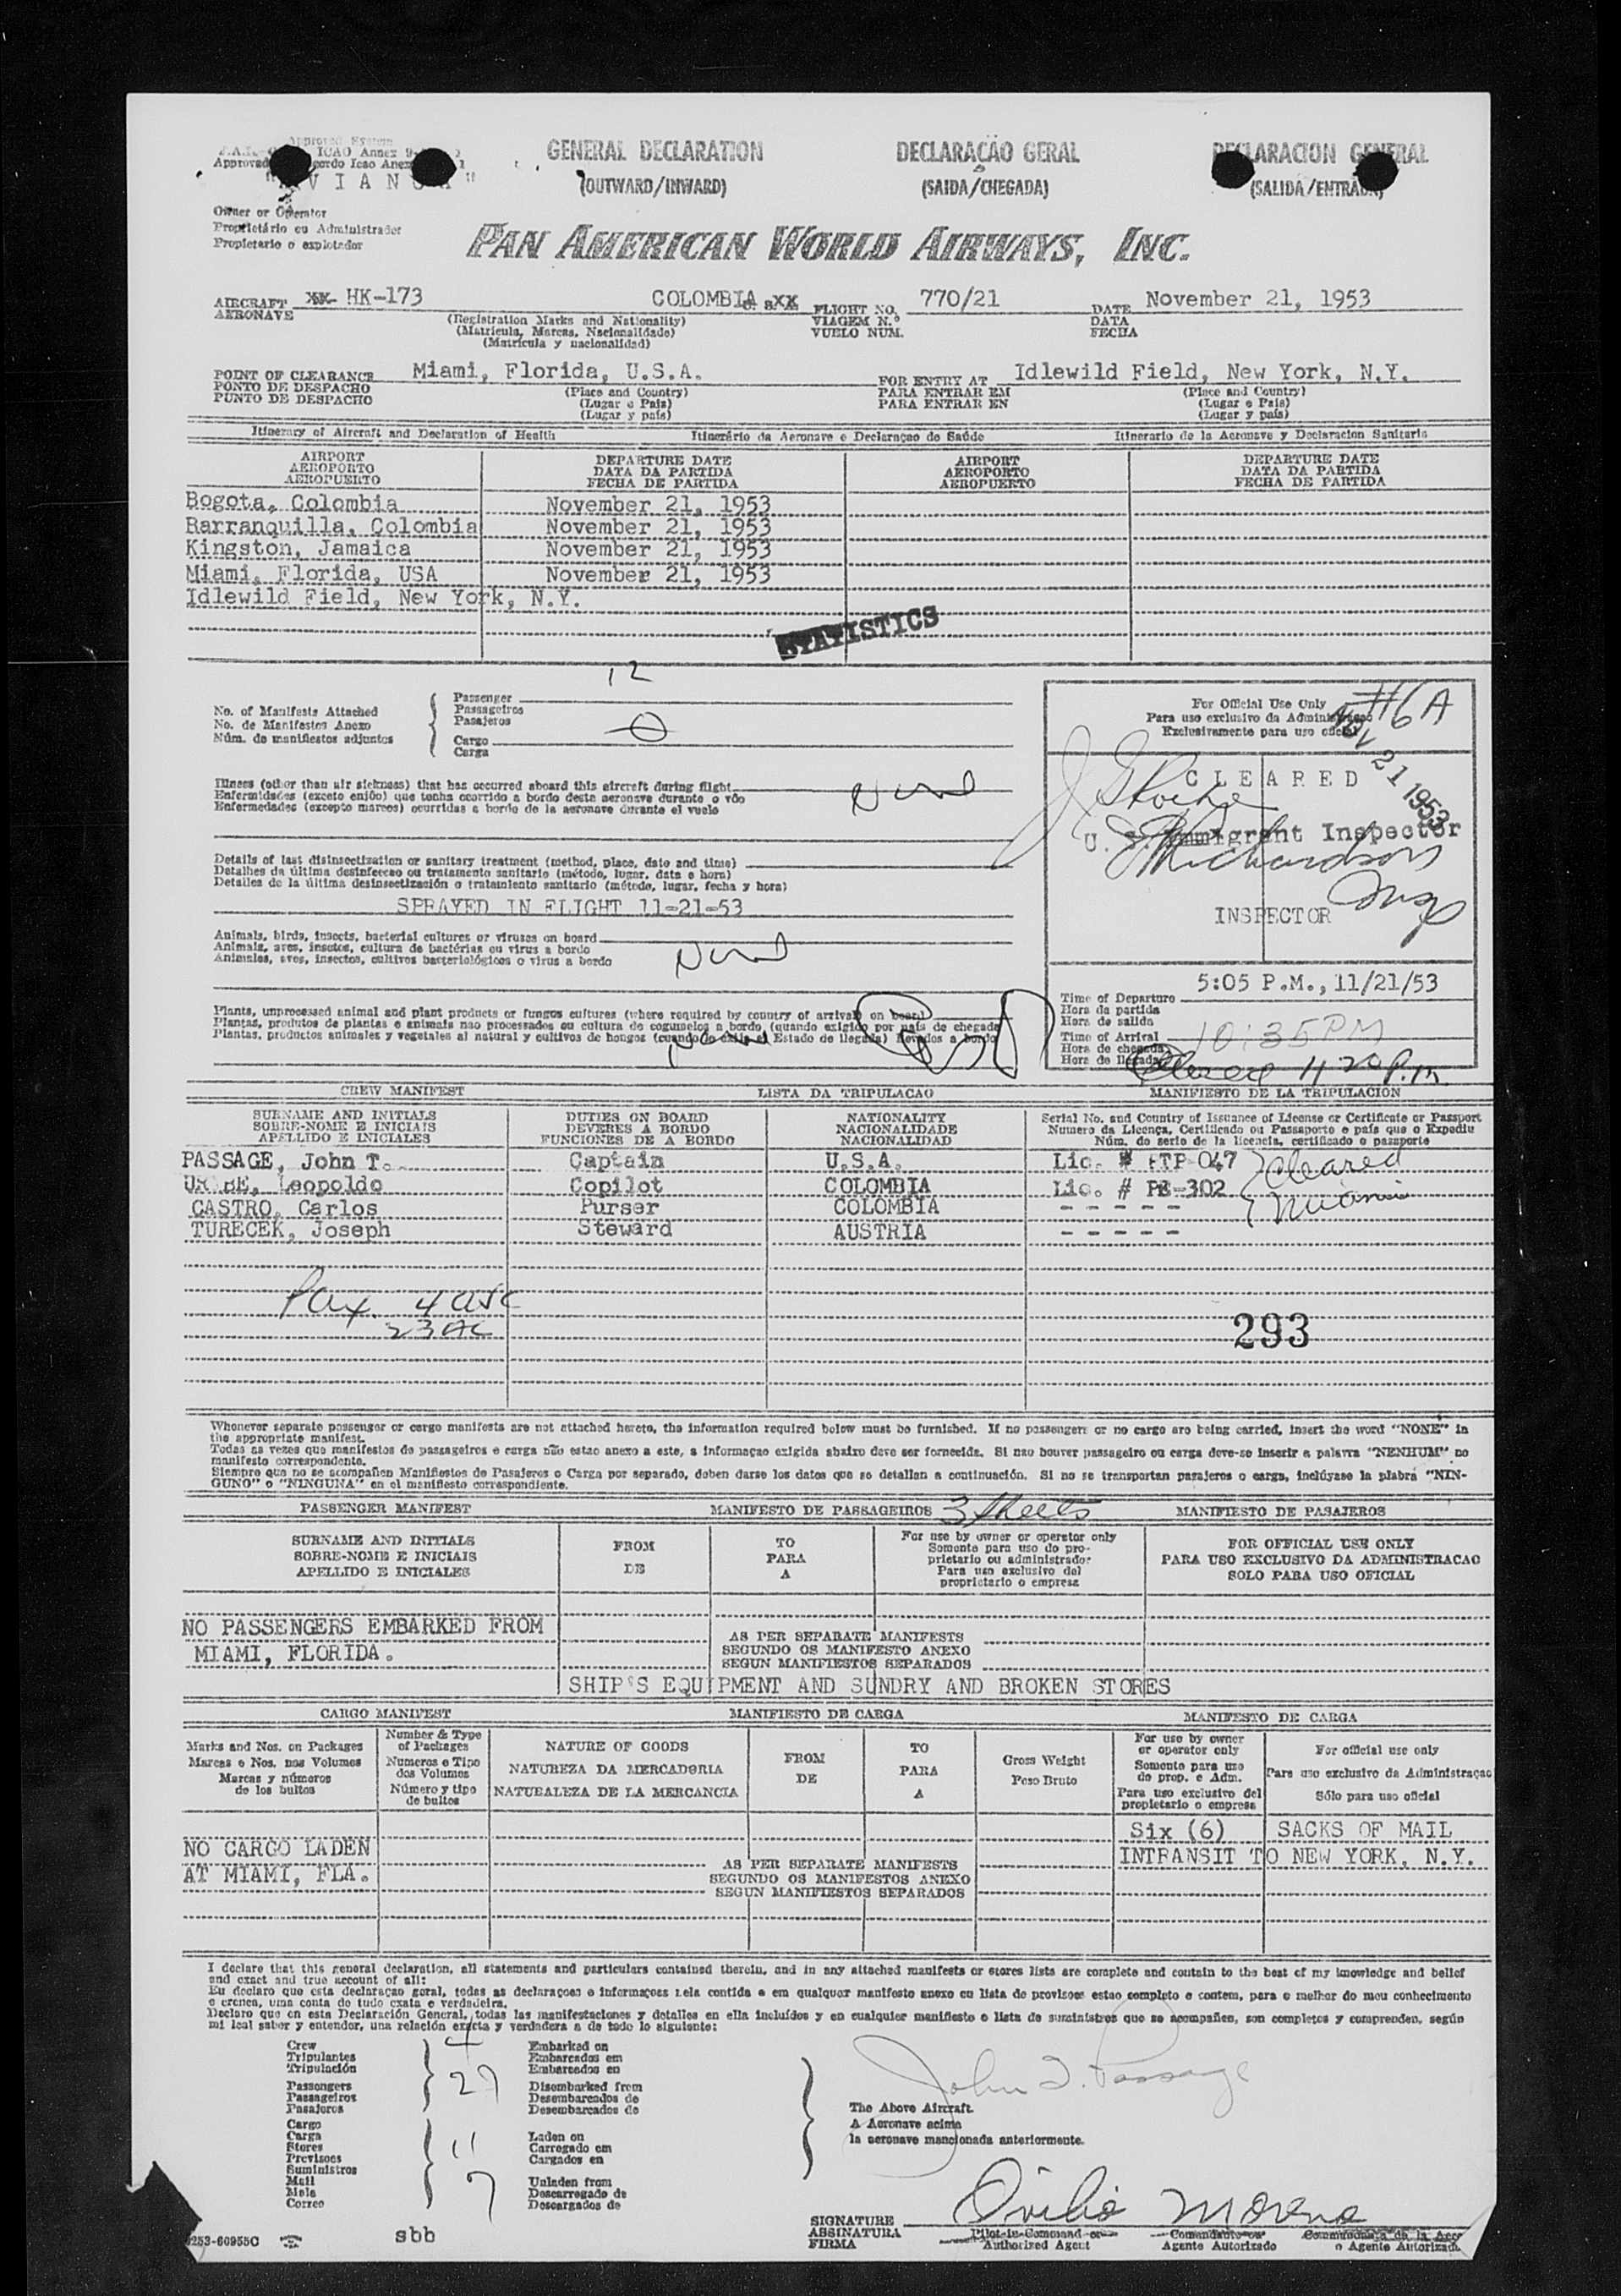 Approved System
ICAO Annex 9
Approved Acordo Icao Anexo
"AVIANCA"
Owner or Operator
Proprietário ou Administrador
Propietario o explotador
GENERAL DECLARATION
(OUTWARD/INWARD)
DECLARAÇÃO GERAL
(SAIDA/CHEGADA)
DECLARACION GENERAL
(SALIDA/ENTRADA)
PAN AMERICAN WORLD AIRWAYS, INC.
AIRCRAFT HK-173 COLOMBIA FLIGHT NO. 770/21 DATE November 21, 1953
AERONAVE (Registration Marks and Nationality) VIAGEM N.º DATA
(Matricula, Marcas, Nacionalidade) VUELO NUM. FECHA
(Matrícula y nacionalidad)
POINT OF CLEARANCE Miami, Florida, U.S.A. FOR ENTRY AT Idlewild Field, New York, N.Y.
PONTO DE DESPACHO (Place and Country) PARA ENTRAR EM (Place and Country)
PUNTO DE DESPACHO (Lugar e País) PARA ENTRAR EN (Lugar e País)
(Lugar y país) (Lugar y país)
Itinerary of Aircraft and Declaration of Health Itinerário da Aeronave e Declaraçao de Saúde Itinerario de la Aeronave y Declaracion Sanitaria
AIRPORT DEPARTURE DATE AIRPORT DEPARTURE DATE
AEROPORTO DATA DA PARTIDA AEROPORTO DATA DA PARTIDA
AEROPUERTO FECHA DE PARTIDA AEROPUERTO FECHA DE PARTIDA
Bogota, Colombia November 21, 1953
Barranquilla, Colombia November 21, 1953
Kingston, Jamaica November 21, 1953
Miami, Florida, USA November 21, 1953
Idlewild Field, New York, N.Y.
STATISTICS
12
No. of Manifests Attached Passenger
No. de Manifestos Anexo Passageiros
Núm. de manifiestos adjuntos Pasajeros
Cargo 0
Carga
Illness (other than air sickness) that has occurred aboard this aircraft during flight
Enfermidades (exceto enjôo) que tenha ocorrido a bordo deste aeronave durante o vôo
Enfermedades (excepto mareos) ocurridas a bordo de la aeronave durante el vuelo
None
Details of last disinsectization or sanitary treatment (method, place, date and time)
Detalhes da última desinfeccao ou tratamento sanitario (método, lugar, data e hora)
Detalles de la última desinsectización o tratamiento sanitario (método, lugar, fecha y hora)
SPRAYED IN FLIGHT 11-21-53
Animals, birds, insects, bacterial cultures or viruses on board
Animais, aves, insetos, cultura de bactérias ou virus a bordo
Animales, aves, insectos, cultivos bacteriológicos o virus a bordo
None
Plants, unprocessed animal and plant products or fungus cultures (where required by country of arrival) on board
Plantas, produtos de plantas e animais nao processados ou cultura de cogumelos a bordo (quando exigido por país de chegada
Plantas, productos animales y vegetales al natural y cultivos de hongos (cuando lo exija el Estado de llegada) llevados a bordo
None
For Official Use Only #6A
Para uso exclusivo da Administraçao
Exclusivamente para uso oficial
NOV 21 1953
CLEARED
U. S. Immigrant Inspector
Richardson
INSPECTOR
5:05 P.M., 11/21/53
Time of Departure
Hora da partida
Hora de salida
Time of Arrival 10:35 PM
Hora de chegada
Hora de llegada
Cleared 11 20 P.m.
CREW MANIFEST LISTA DA TRIPULACAO MANIFIESTO DE LA TRIPULACIÓN
SURNAME AND INITIALS DUTIES ON BOARD NATIONALITY Serial No. and Country of Issuance of License or Certificate or Passport
SOBRE-NOME E INICIAIS DEVERES A BORDO NACIONALIDADE Numero da Licença, Certificado ou Passaporte e país que o Expediu
APELLIDO E INICIALES FUNCIONES DE A BORDO NACIONALIDAD Núm. de serie de la licencia, certificado o pasaporte
PASSAGE, John T. Captain U.S.A. Lic. # PTP-047 Cleared
URIBE, Leopoldo Copilot COLOMBIA Lic. # PB-302 Miami
CASTRO, Carlos Purser COLOMBIA - - - - -
TURECEK, Joseph Steward AUSTRIA - - - - -
Pax. 4 USC
23 AC
293
Whenever separate passenger or cargo manifests are not attached hereto, the information required below must be furnished. If no passengers or no cargo are being carried, insert the word "NONE" in
the appropriate manifest.
Todas as vezes que manifestos de passageiros e carga não estao anexo a este, a informaçao exigida abaixo deve ser fornecida. Si nao houver passageiro ou carga deve-se inserir a palavra "NENHUM" no
manifesto correspondente.
Siempre que no se acompañen Manifiestos de Pasajeros o Carga por separado, deben darse los datos que se detallan a continuación. Si no se transportan pasajeros o carga, inclúyase la plabra "NIN-
GUNO" o "NINGUNA" en el manifiesto correspondiente.
PASSENGER MANIFEST MANIFESTO DE PASSAGEIROS 3 sheets MANIFIESTO DE PASAJEROS
SURNAME AND INITIALS FROM TO For use by owner or operator only FOR OFFICIAL USE ONLY
SOBRE-NOME E INICIAIS DE PARA Somente para uso do pro- PARA USO EXCLUSIVO DA ADMINISTRACAO
APELLIDO E INICIALES A prietario ou administrador SOLO PARA USO OFICIAL
Para uso exclusivo del
proprietario o empresa
NO PASSENGERS EMBARKED FROM
MIAMI, FLORIDA.
AS PER SEPARATE MANIFESTS
SEGUNDO OS MANIFESTO ANEXO
SEGUN MANIFIESTOS SEPARADOS
SHIP'S EQUIPMENT AND SUNDRY AND BROKEN STORES
CARGO MANIFEST MANIFIESTO DE CARGA MANIFESTO DE CARGA
Marks and Nos. on Packages
Marcas e Nos. nos Volumes
Marcas y números
de los bultos
Number & Type
of Packages
Numeros e Tipo
dos Volumes
Número y tipo
de bultos
NATURE OF GOODS
NATUREZA DA MERCADORIA
NATURALEZA DE LA MERCANCIA
FROM
DE
TO
PARA
A
Gross Weight
Peso Bruto
For use by owner
or operator only
Somente para uso
do prop. e Adm.
Para uso exclusivo del
propietario o empresa
For official use only
Para uso exclusivo da Administraçao
Sólo para uso oficial
Six (6) SACKS OF MAIL
INTRANSIT TO NEW YORK, N.Y.
NO CARGO LADEN
AT MIAMI, FLA.
AS PER SEPARATE MANIFESTS
SEGUNDO OS MANIFESTOS ANEXO
SEGUN MANIFIESTOS SEPARADOS
I declare that this general declaration, all statements and particulars contained therein, and in any attached manifests or stores lists are complete and contain to the best of my knowledge and belief
and exact and true account of all:
Eu declaro que esta declaraçao geral, todas as declaraçoes e informaçoes nela contida e em qualquer manifesto anexo ou lista de provisoes estao completo e contem, para o melhor do meu conhecimento
e crenca, uma conta do tudo exata e verdadeira.
Declaro que en esta Declaración General, todas las manifestaciones y detalles en ella incluídos y en cualquier manifiesto o lista de suministros que se acompañen, son completos y comprenden, según
mi leal saber y entender, una relación exacta y verdadera a de todo lo siguiente:
Crew 4 Embarked on
Tripulantes Embarcados em
Tripulación Embarcados en
Passengers 27 Disembarked from
Passageiros Desembarcados de
Pasajeros Desembarcados de
Cargo
Carga Laden on
Stores 11 Carregado em
Previsoes Cargados en
Suministros
Mail 7 Unladen from
Mala Descarregado de
Correo Descargados de
John T. Passage
The Above Aircraft.
A Aeronave acima
la aeronave mancionada anteriormente.
Ovilio Moreno
SIGNATURE
ASSINATURA
FIRMA
Pilot-in-Command or
Authorized Agent
Comandante ou
Agente Autorizado
o Agente Autorizado
253-60955C
sbb